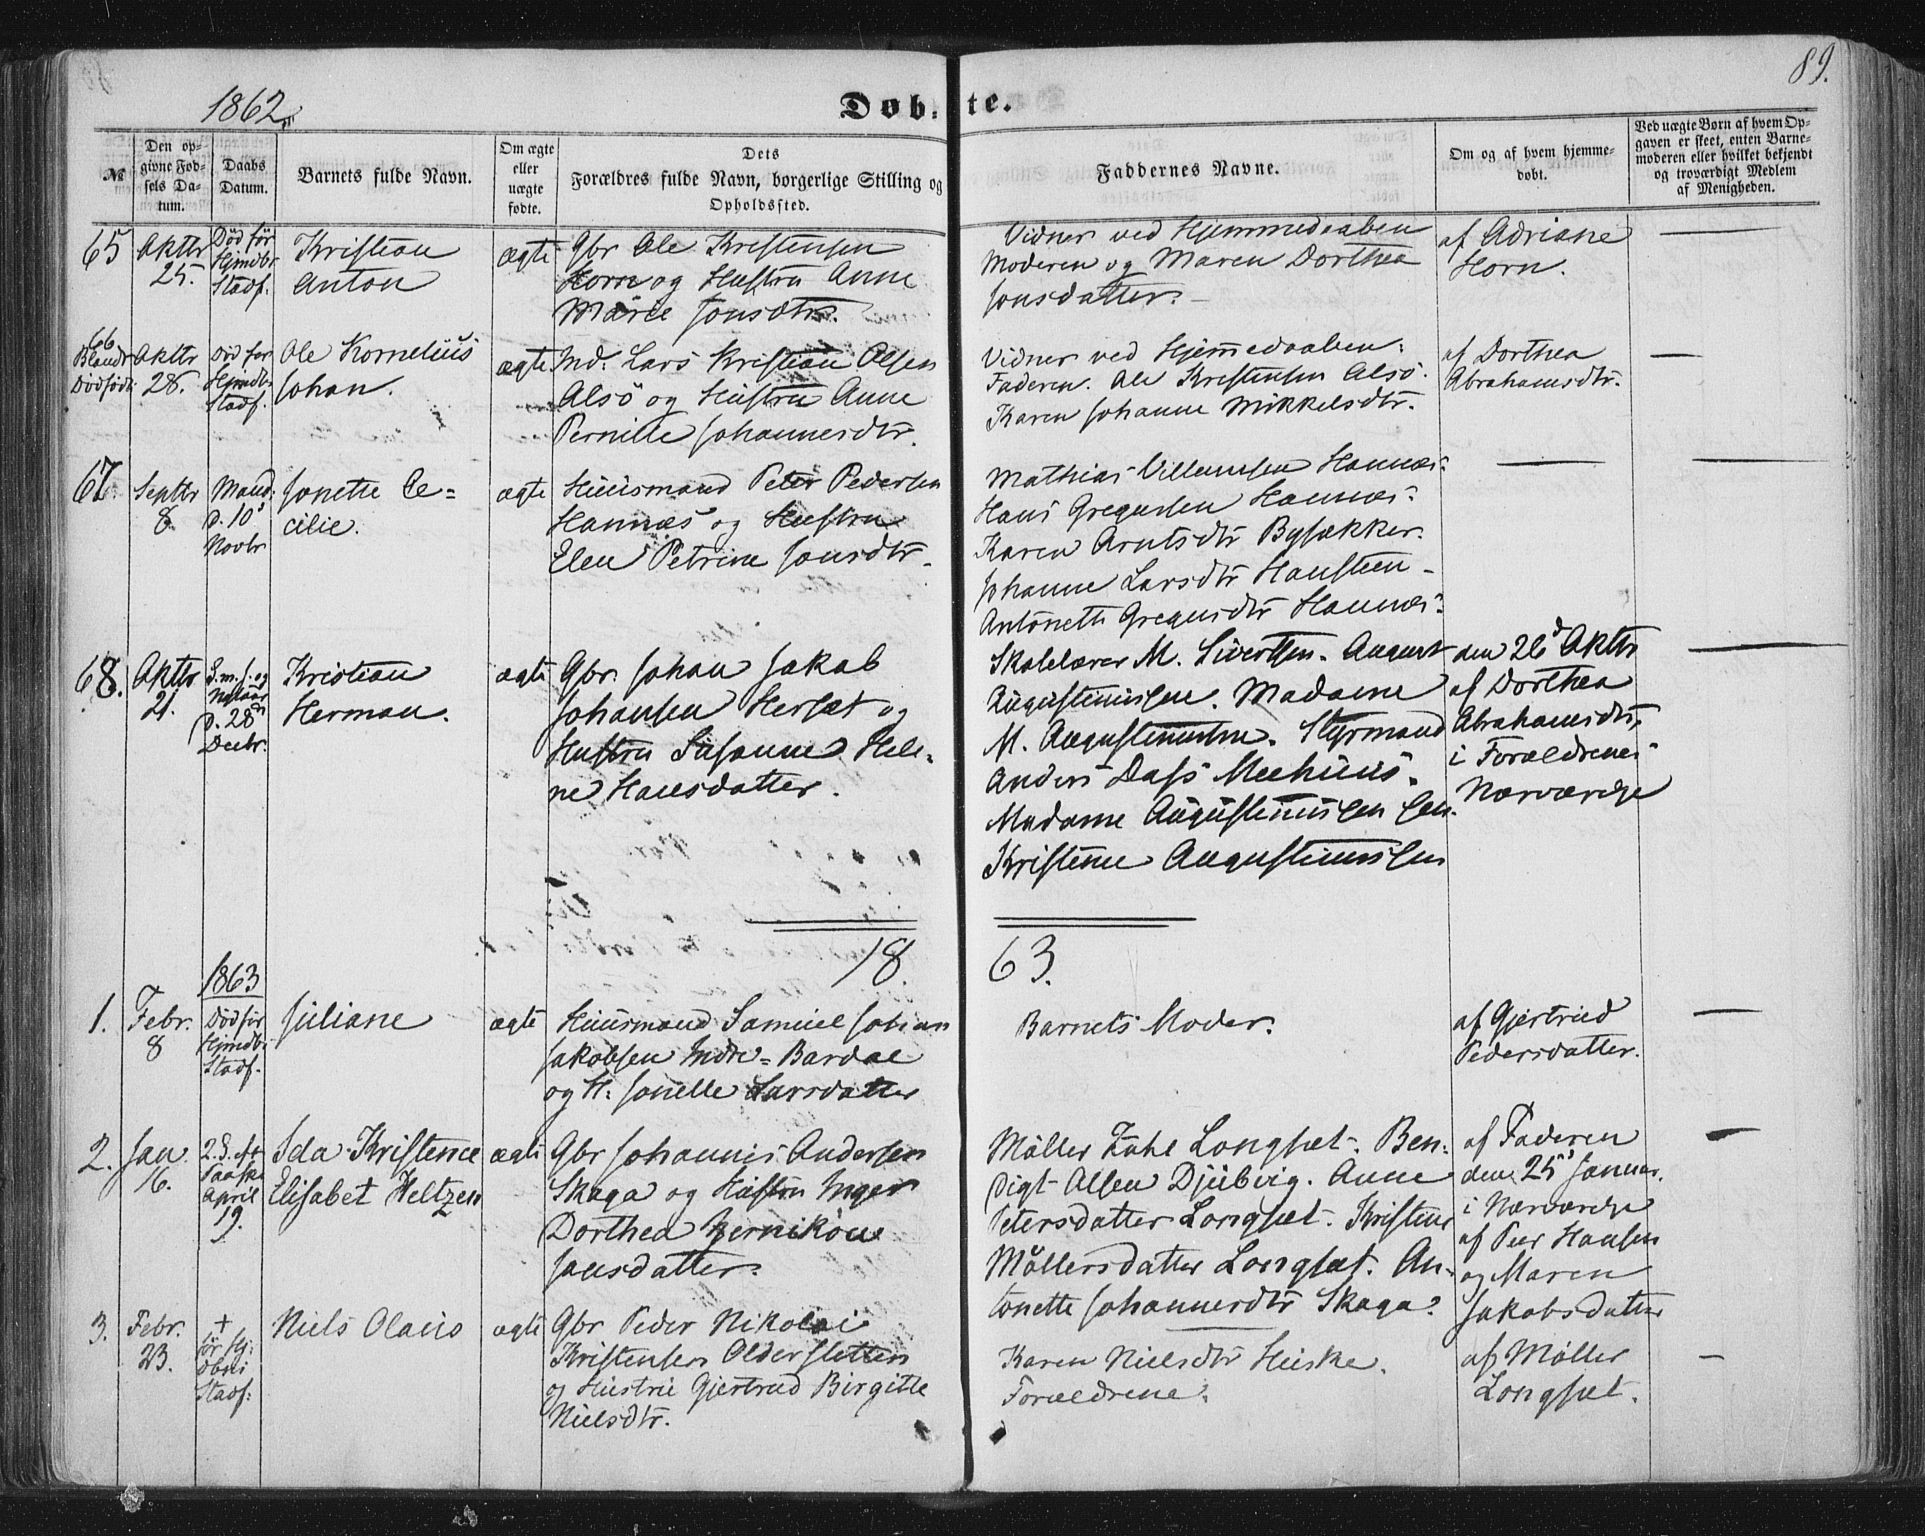 89.
1862.
Døb= te.
№
Den op-
givne Fød-
sels Da-
tum.
Daabs
Datum.
Barnets fulde Navn.
Om ægte
eller
uægte
fødte.
Dets
Forældres fulde Navn, borgerlige Stilling og
Opholdssted.
Faddernes Navne.
Om og af hvem hjemme-
døbt.
Ved uægte Børn af hvem Op-
gaven er skeet, enten Barne-
moderen eller hvilket bekjendt
og troværdigt Medlem
af Menigheden.
65
Aktbr
25.
Død før
Hjmdbs
Stadf.
Kristian
Anton
ægte
Gbr Ole Kristensen
Horn og Hustru Anne
Marie Jonsdtr.
Vidner ved Hjemmedaaben
Moderen og Maren Dorthea
Jonsdatter.
af Adriane
Horn.
66
Blandt
Dødfødte
Aktbr
28.
Død før
Hjmdbs
Stadf.
Ole Kornelius
Johan.
ægte
Md. Lars Kristian Olsen
Alsö og Hustru Anne
Pernille Johannesdtr.
Vidner ved Hjemmedaaben:
Faderen. Ole Kristensen Alsö.
Karen Johanne Mikkelsdtr.
af Dorthea
Abrahamsdtr.
67.
Septbr
8
Mand:
d. 10d
Novbr
Jonette Ce=
cilie.
ægte
Huusmand Peter Pedersen
Hannæs og Hustru
Elen Petrine Jonsdtr.
Mathias Villumsen Hannæs.
Hans Gregussen Hannæs.
Karen Arntsdtr Bysækker.
Johanne Larsdtr Hansteen
Antonette Gregusdtr Hannæs.
68.
Aktbr
21.
S.m.J. og
Nytaar
d. 28d
Decbr.
Kristian
Herman.
ægte
Gbr Johan Jakob
Johansen Hersæt og
Hustru Susanne Hele=
ne Hansdatter.
Skolelærer M. Sivertsen. August
Augustinussen. Madame
M. Augustinussen. Styrmand
Anders Dass Meehuus.
Madame Augustinussen sen.
Kristenne Augustinussen
den 26d Aktbr
af Dorthea
Abrahamsdtr
i Forældrenes
Nærværelse
18 63.
1863
1.
Febr.
8
Død før
Hjmdbs
Stadf.
Juliane
ægte
Huusmand Samuel Johan
Jakobsen Indre=Bardal
og H: Jonelle Larsdatter
Barnets Moder.
af Gjertrud
Pedersdatter.
2.
Jan.
16.
2. S. eft
Paaske
April
19.
Ida Kristence
Elisabet Heltzen
ægte
Gbr Johannes Andersen
Skaga og Hustru Inger
Dorthea
Jonsdatter.
Møller Zahl Longsæt. Ben=
digt Olsen Djubvig. Anne
Petersdatter Longsæt. Kristine
Møllersdatter Longsæt. An=
tonette Johannesdtr Skaga.
af Faderen
den 25d Januar
i Nærværelse
af Peer Hansen
og Maren
Jakobsdatter
3.
Febr.
23.
+
før Hj:
dbens
Stadf:
Niels Olaus
ægte
Gbr Peder Nikolai
Kristensen Oldersletten
og Hustrue Gjertrud Birgitte
Nielsdtr.
Karen Nielsdtr Huske.
Forældrene.
af Møller
Longsæt.